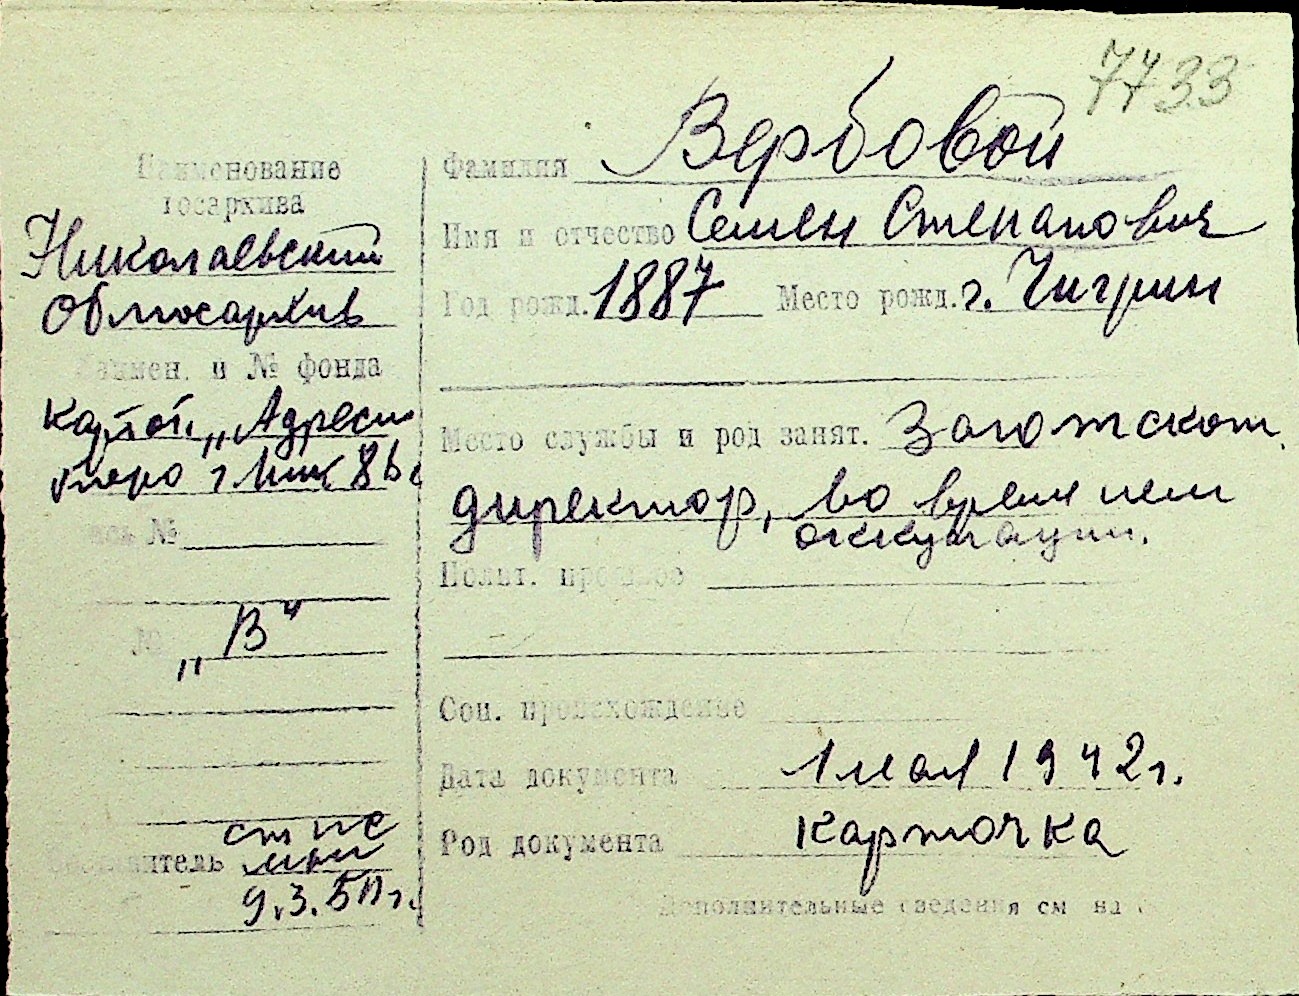 7733
Наименование
госархива
Николаевский
Облгосархив
Наимен. и № фонда
картот. „Адресн
бюро г. Ник
№
№ „В“
Составитель
9.3.50 г.
Фамилия Вербовой
Имя и отчество Семен Степанович
Год рожд. 1887 Место рожд. г. Чигрин
Место службы и род занят. Заготскот.
директор, во время нем
оккупации.
Полит. прошлое
Соц. происхождение
Дата документа 1 мая 1942 г.
Род документа карточка
Дополнительные сведения см на